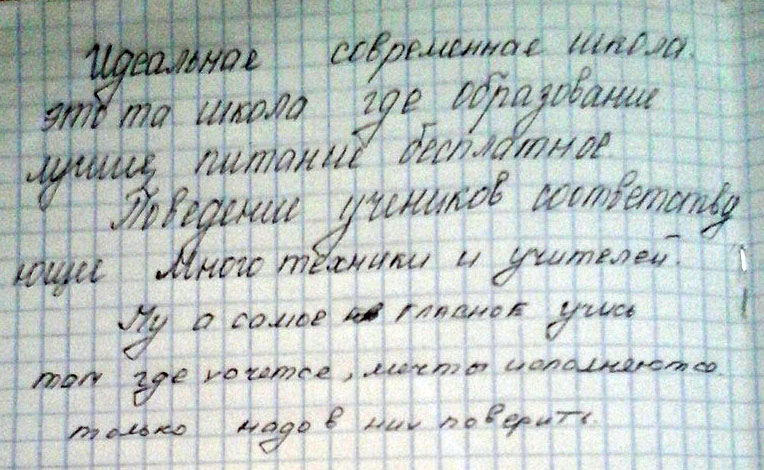 Идеальная современная школа.
это та школа где образование
лучшие, питание бесплатное.
Поведение учеников соответству
ющие Много техники и учителей.
Ну а самое главное учись
там где хочется, мечты исполняются
только надо в них поверить.